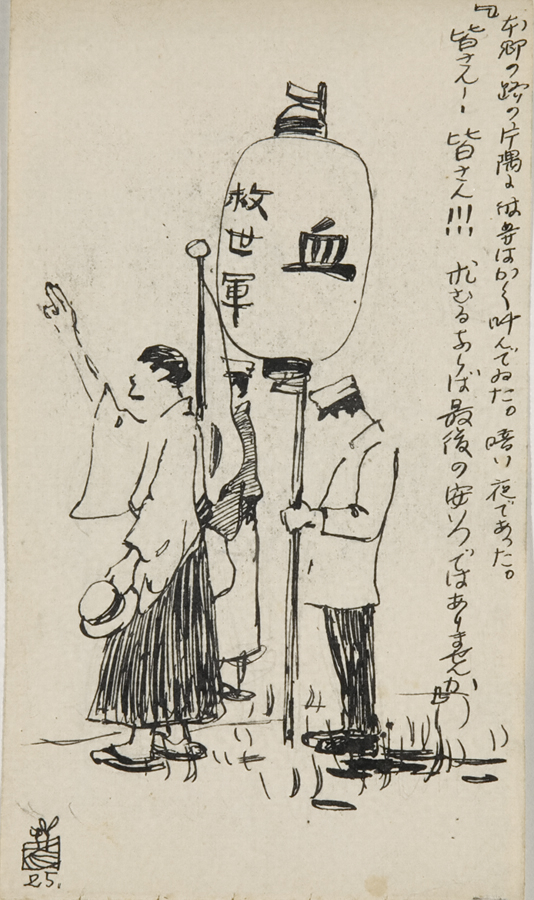 本郷の路の片隅に彼等はかく叫んでゐた。暗い夜であった。
「皆さんー、皆さん!!! あらば最後の安心ではありませんか」
救世軍
血
25.